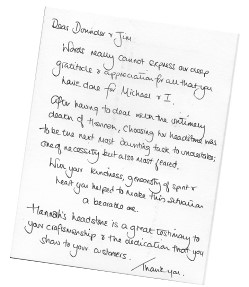 Dear Domindar & Jim
Words really cannot express our deep
gratitude & appreciation for all that you
have done for Michael & I.
After having to deal with the untimely
death of Hannah, choosing her headstone was
to be the next most daunting task to undertake;
one of necessity but also most feared.
With your kindness, generosity of spirit &
heart you helped to make this situation
a bearable one.
Hannah's headstone is a great testimony to
your craftsmanship & the dedication that you
show to your customers.
Thank you.